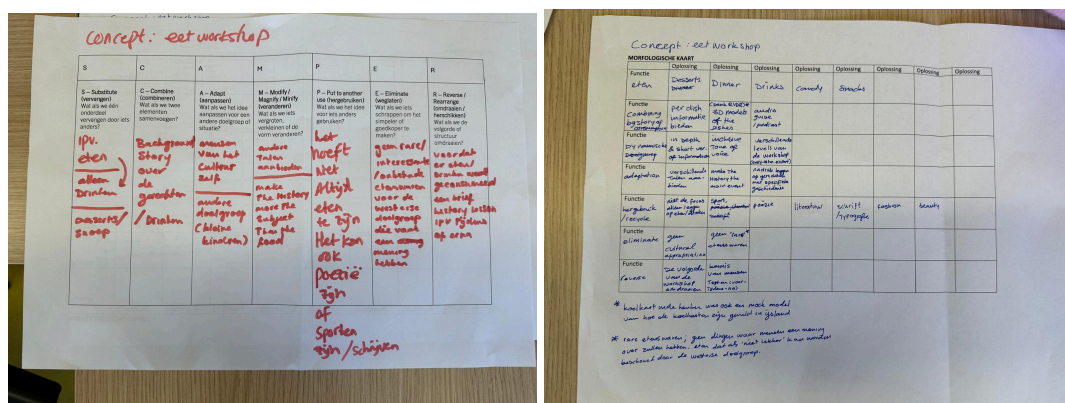 Concept: eetworkshop
S
C
A
M
P
E
R
S – Substitute
(vervangen)
Wat als we één
onderdeel
vervangen door iets
anders?
C – Combine
(combineren)
Wat als we twee
elementen
samenvoegen?
A – Adapt
(aanpassen)
Wat als we het idee
aanpassen voor een
andere doelgroep of
situatie?
M – Modify /
Magnify / Minify
(veranderen)
Wat als we iets
vergroten,
verkleinen of de
vorm veranderen?
P – Put to another
use (hergebruiken)
Wat als we het idee
voor iets anders
gebruiken?
E – Eliminate
(weglaten)
Wat als we iets
schrappen om het
simpeler of
goedkoper te
maken?
R – Reverse /
Rearrange
(omdraaien /
herschikken)
Wat als we de
volgorde of
structuur
omdraaien?
ipv.
eten
alleen
Drinken
desserts/
snoep
Background
Story
over
de
gerechten
/Drinken
mensen
van het
Cultuur
zelf
andere
doelgroep
(kleine
kinderen)
andere
Talen
aanbieden
make
The History
more The
Subject
Than The
Food
het
hoeft
niet
Altijd
eten
te zijn
Het kan
ook
poëzie
zijn
of
Sporten
zijn/schijven
geen rare/
interessante
/onbekende
etenswaren
voor de
westerse
doelgroep
die vaak
een
mening
hebben
voordat
er eten/
drinken wordt
geconsumeerd
een brief
history lesson
ipv tijdens
of erna
Concept: eetworkshop
MORFOLOGISCHE KAART
Functie
Oplossing
Oplossing
Oplossing
Oplossing
Oplossing
Oplossing
Oplossing
Oplossing
eten
Desserts
Dinner
Drinks
Candy
Snacks
Functie
Combining
bg story of
per dish
informatie
bieden
3D models
of the
dishes
audio
guide
/podcast
Functie
in depth
& short ver.
of information
Tone of
voice
verschillende
levels van
de workshop
Functie
adaptation
verschillende
Talen aan-
bieden
make The
History the
main event
Functie
hergebruik/
recycle
sport,
poëzie
literatuur
schrift
/typografie
fashion
beauty
Functie
eliminate
geen
cultural
appropriation
geen "rare"*
etenswaren
Functie
reverse
De volgorde
van de
workshop
omdraaien
kennis
van mensen
* koelkast
van hoe de koelkasten zijn gevuld in ijsland
* rare etenswaren; geen dingen waar mensen een mening
over zullen hebben. eten dat als 'niet lekker' kan worden
beschouwd door de westerse doelgroep.